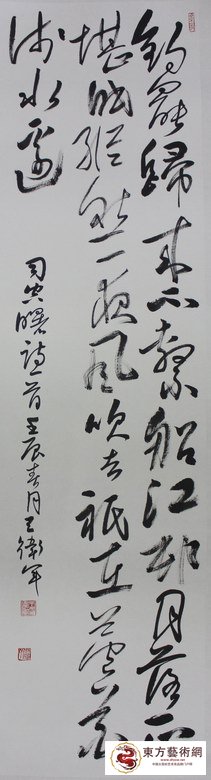 釣罷歸來不繫船江邨月落正
堪眠縱然一夜風吹去祇在蘆花
淺水邊
司空曙詩一首壬辰春月王衛軍
東方藝術網